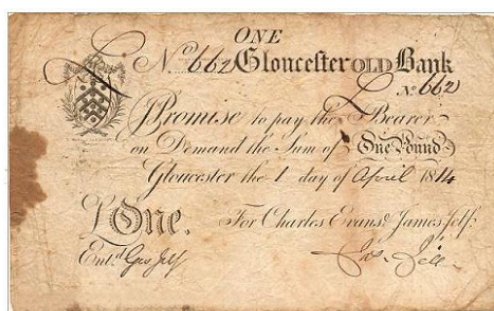 ONE
No. 662 Gloucester OLD Bank
No. 662
I Promise to pay the Bearer
on Demand the Sum of One Pound
Gloucester the 1 day of April 1814
£ One. For Charles Evans & James Jelf:
Entd. Geo Jelf Jas. Jelf